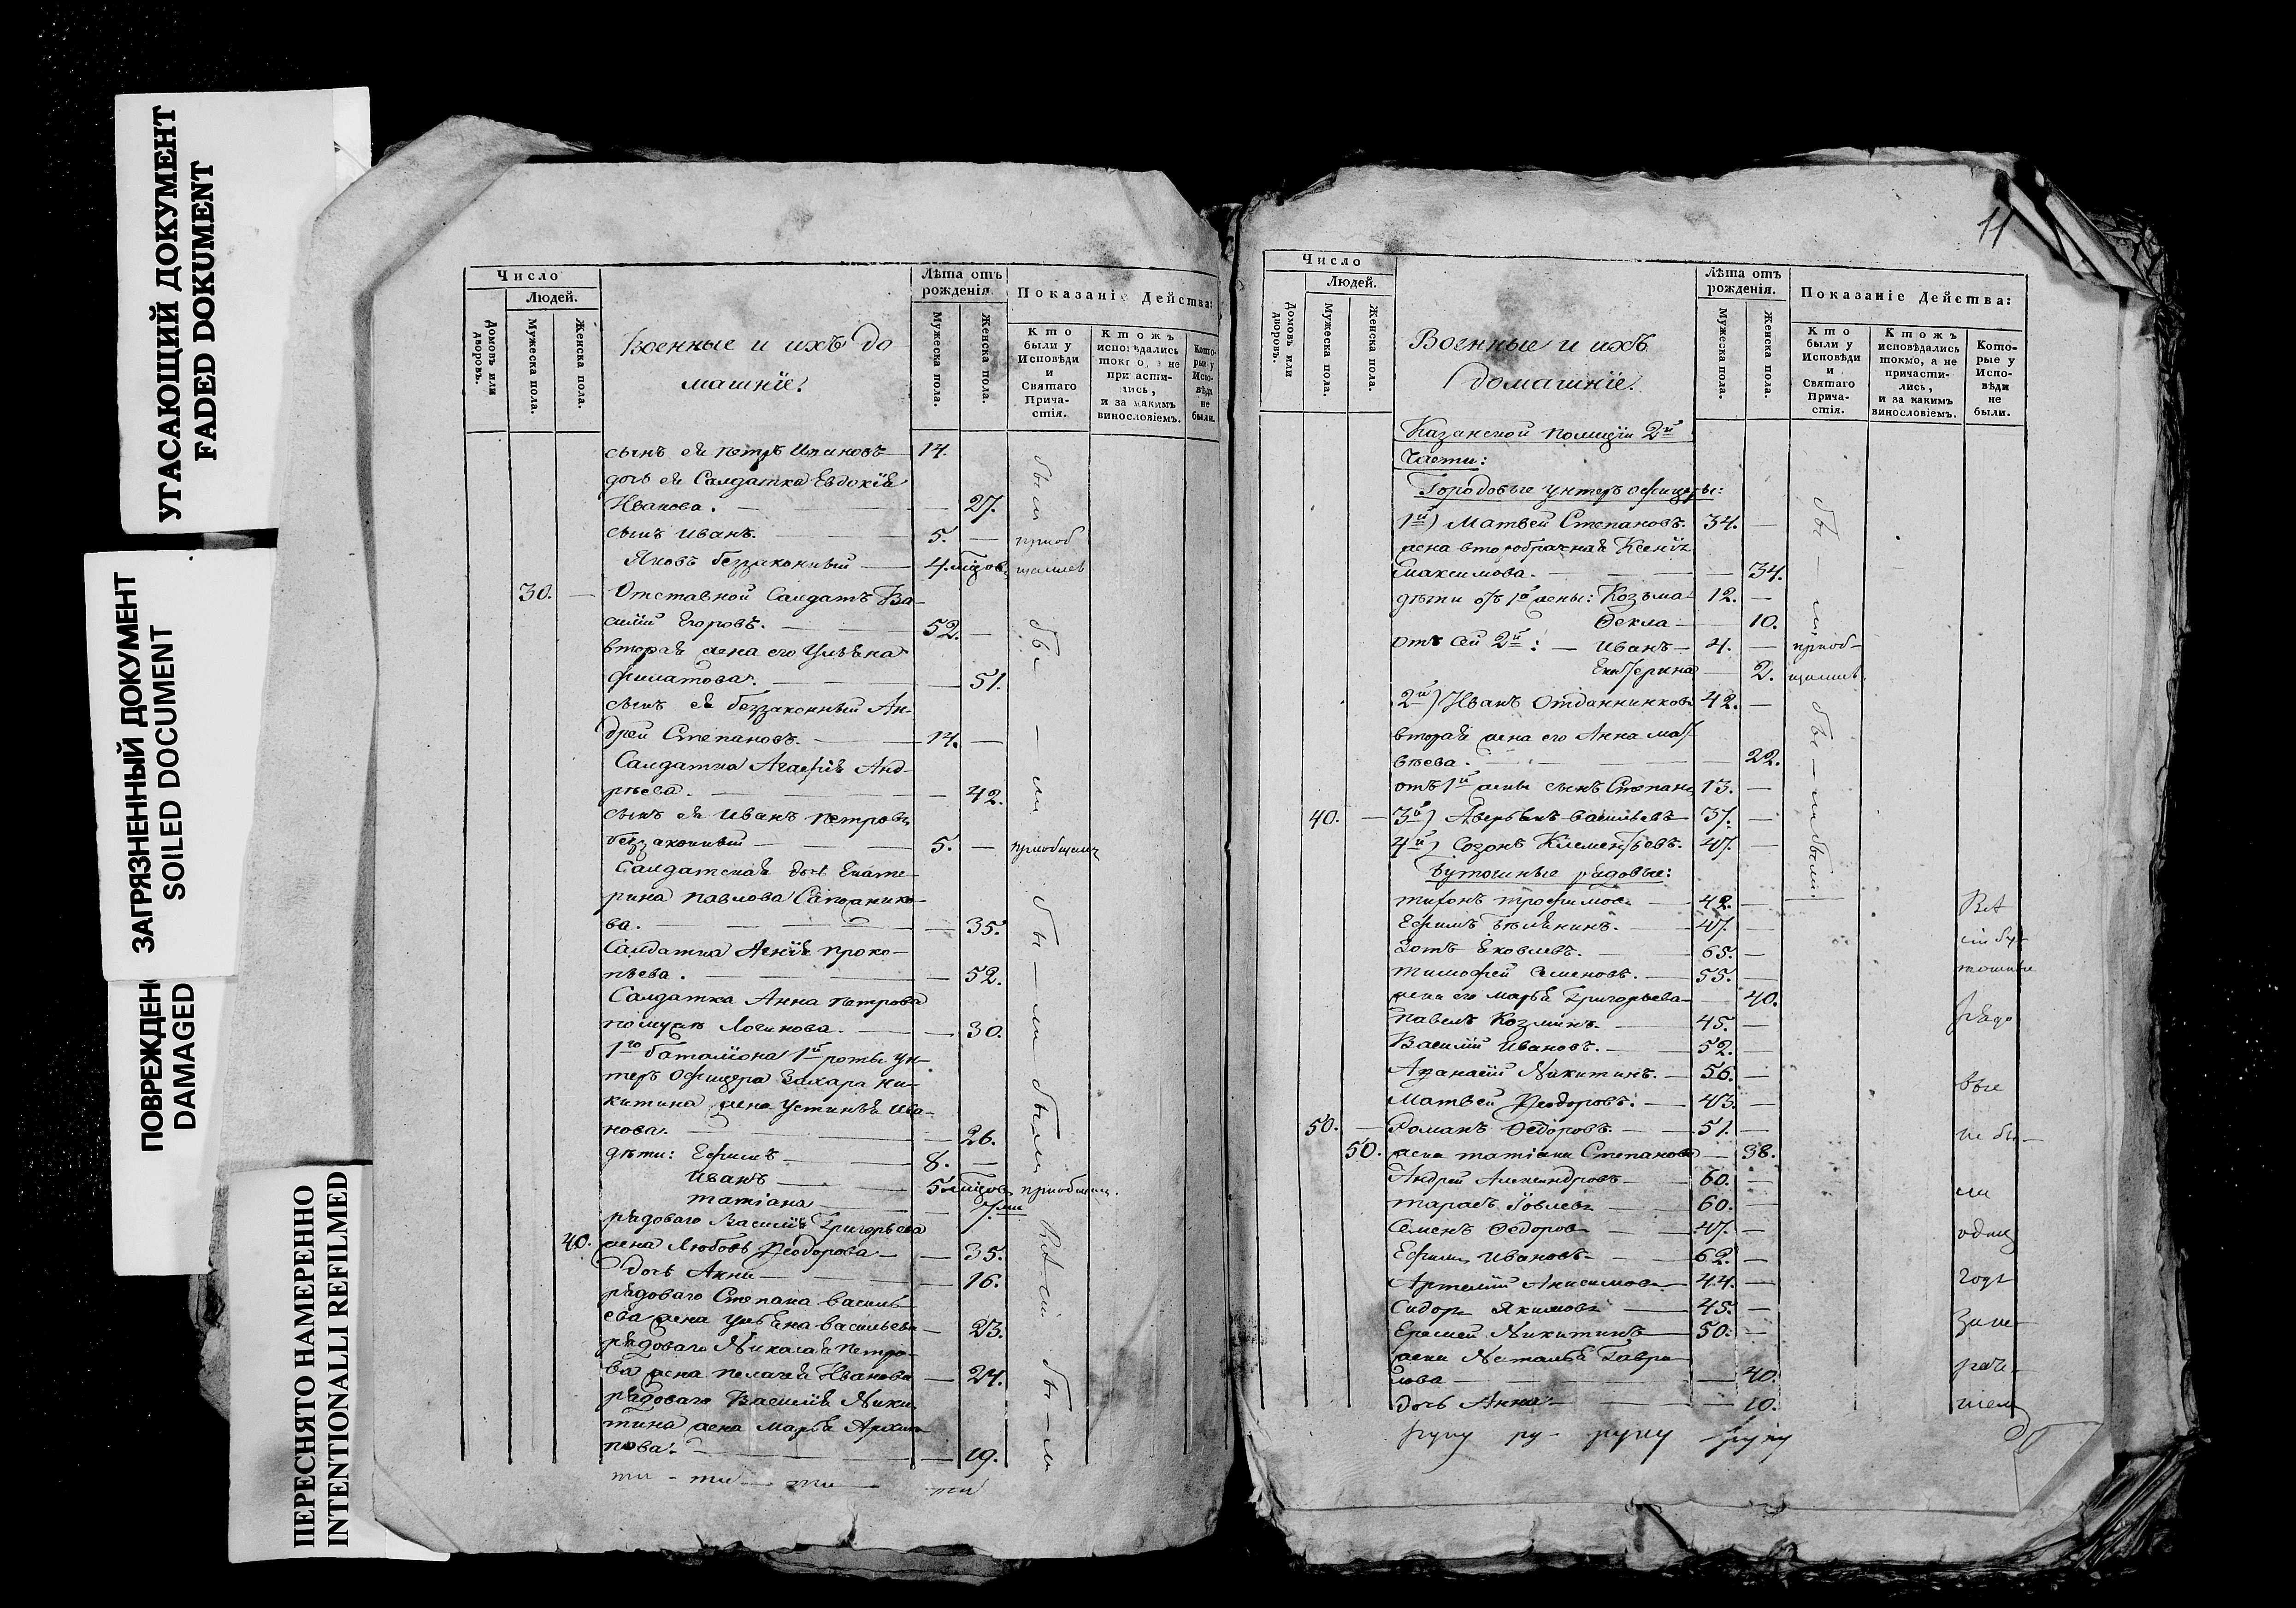 УГАСАЮЩИЙ ДОКУМЕНТ
FADED DOKUMENT
ЗАГРЯЗНЕННЫЙ ДОКУМЕНТ
SOILED DOCUMENT
ПОВРЕЖДЕН
DAMAGED
ПЕРЕСНЯТО НАМЕРЕННО
INTENTIONALLI REFILMED
Число
Людей.
Домовъ или дворовъ.
Мужеска пола.
Женска пола.
Военные и ихъ до
машнїе.
Лѣта отъ
рожденія
Мужеска пола.
Женска пола.
Показаніе Действа:
Кто были у Исповѣди и Святаго Прича-стія.
Ктожъ исповѣдались токмо, а не причасти-лись, и за какимъ винословіемъ.
Кото-рые у Испо-вѣди не были.
сынъ ея Петръ 14.
дочь ея Салдатка Евдокїя
Иванова. — 27.
сынъ Иванъ. — 5. —
Яковъ беззаконный — 4.
30. — Отставной Салдатъ Ва-
силїй Егоровъ. — 52. —
вторая жена его Ульяна
Филатова. — 51.
сынъ ея беззаконный Ан-
дрей Степановъ. — 14. —
Салдатка Агафїя Анд-
рѣева. — 42.
сынъ ея Иванъ Петровъ
беззаконный — 5. — приобщенъ
Салдатская дочь Екате-
рина Павлова
ва. — 35.
Салдатка Ксенїя Проко-
пьева. — 52.
Салдатка Анна Петрова
Логинова. — 30.
1го баталїона 1й роты ун-
теръ офицера Захара Ни-
китина жена Устинья Ива-
нова. — 26.
дѣти: Ефимъ — 8. —
Иванъ — 5
Татїана — 7
рядоваго Василїя Григорьева
40. жена Любовь Феодорова — 35.
дочь Анна — 16.
рядоваго Степана Василь-
ева жена Ульяна Васильева — 23.
рядоваго Николая Петро-
ва жена Пелагея Иванова — 24.
рядоваго Василїя Ники-
тина жена Марья Архи-
пова. — 19.
11
Число
Людей.
Домовъ или дворовъ.
Мужеска пола.
Женска пола.
Военные и ихъ
домашнїе.
Лѣта отъ
рожденія.
Мужеска пола.
Женска пола.
Показаніе Действа:
Кто были у Исповѣди и Святаго Прича-стія.
Ктожъ исповѣдались токмо, а не причасти-лись, и за какимъ винословіемъ.
Кото-рые у Испо-вѣди не были.
Казанской полицїи 2й
Части:
Городовые унтеръ офицеры:
1й) Матвей Степановъ. 34. —
жена второбрачная Ксенїя
Максимова. — 34.
дѣти отъ 1й жены: Козьма 12. —
Фекла — 10.
отъ сей 2й: — Иванъ — 4. —
Екатерина — 2.
2й) Иванъ Отданниковъ 42. —
вторая жена его Анна Мат
вѣева. — 22.
отъ 1й жены сынъ Степанъ 13. —
40. — 3й) Аверьянъ Васильевъ 37. —
4й) Созонъ Клементьевъ. 47. —
Бутошные рядовые:
Тихонъ Трофимовъ — 42. —
Ефимъ Белянинъ. — 47. —
Зотъ Яковлевъ. — 65. —
Тимофей Семеновъ. — 55. —
жена его Марья Григорьева — 40.
Павелъ Козминъ. — 45. —
Василїй Ивановъ. — 52. —
Афанасїй Никитинъ. — 56. —
Матвей Феодоровъ. — 43. —
50. — Романъ Федоровъ. — 51. —
50. жена Татїана Степанова — 38.
Андрей Александровъ — 60. —
Тарасъ — 60. —
Семенъ Федоровъ — 47. —
Ефимъ Ивановъ — 62. —
Артемїй Анисимовъ — 44. —
Сидоръ Якимовъ — 45. —
Еремей Никитинъ — 50. —
жена Наталья Гаври-
лова — 40.
дочь Анна — 10.